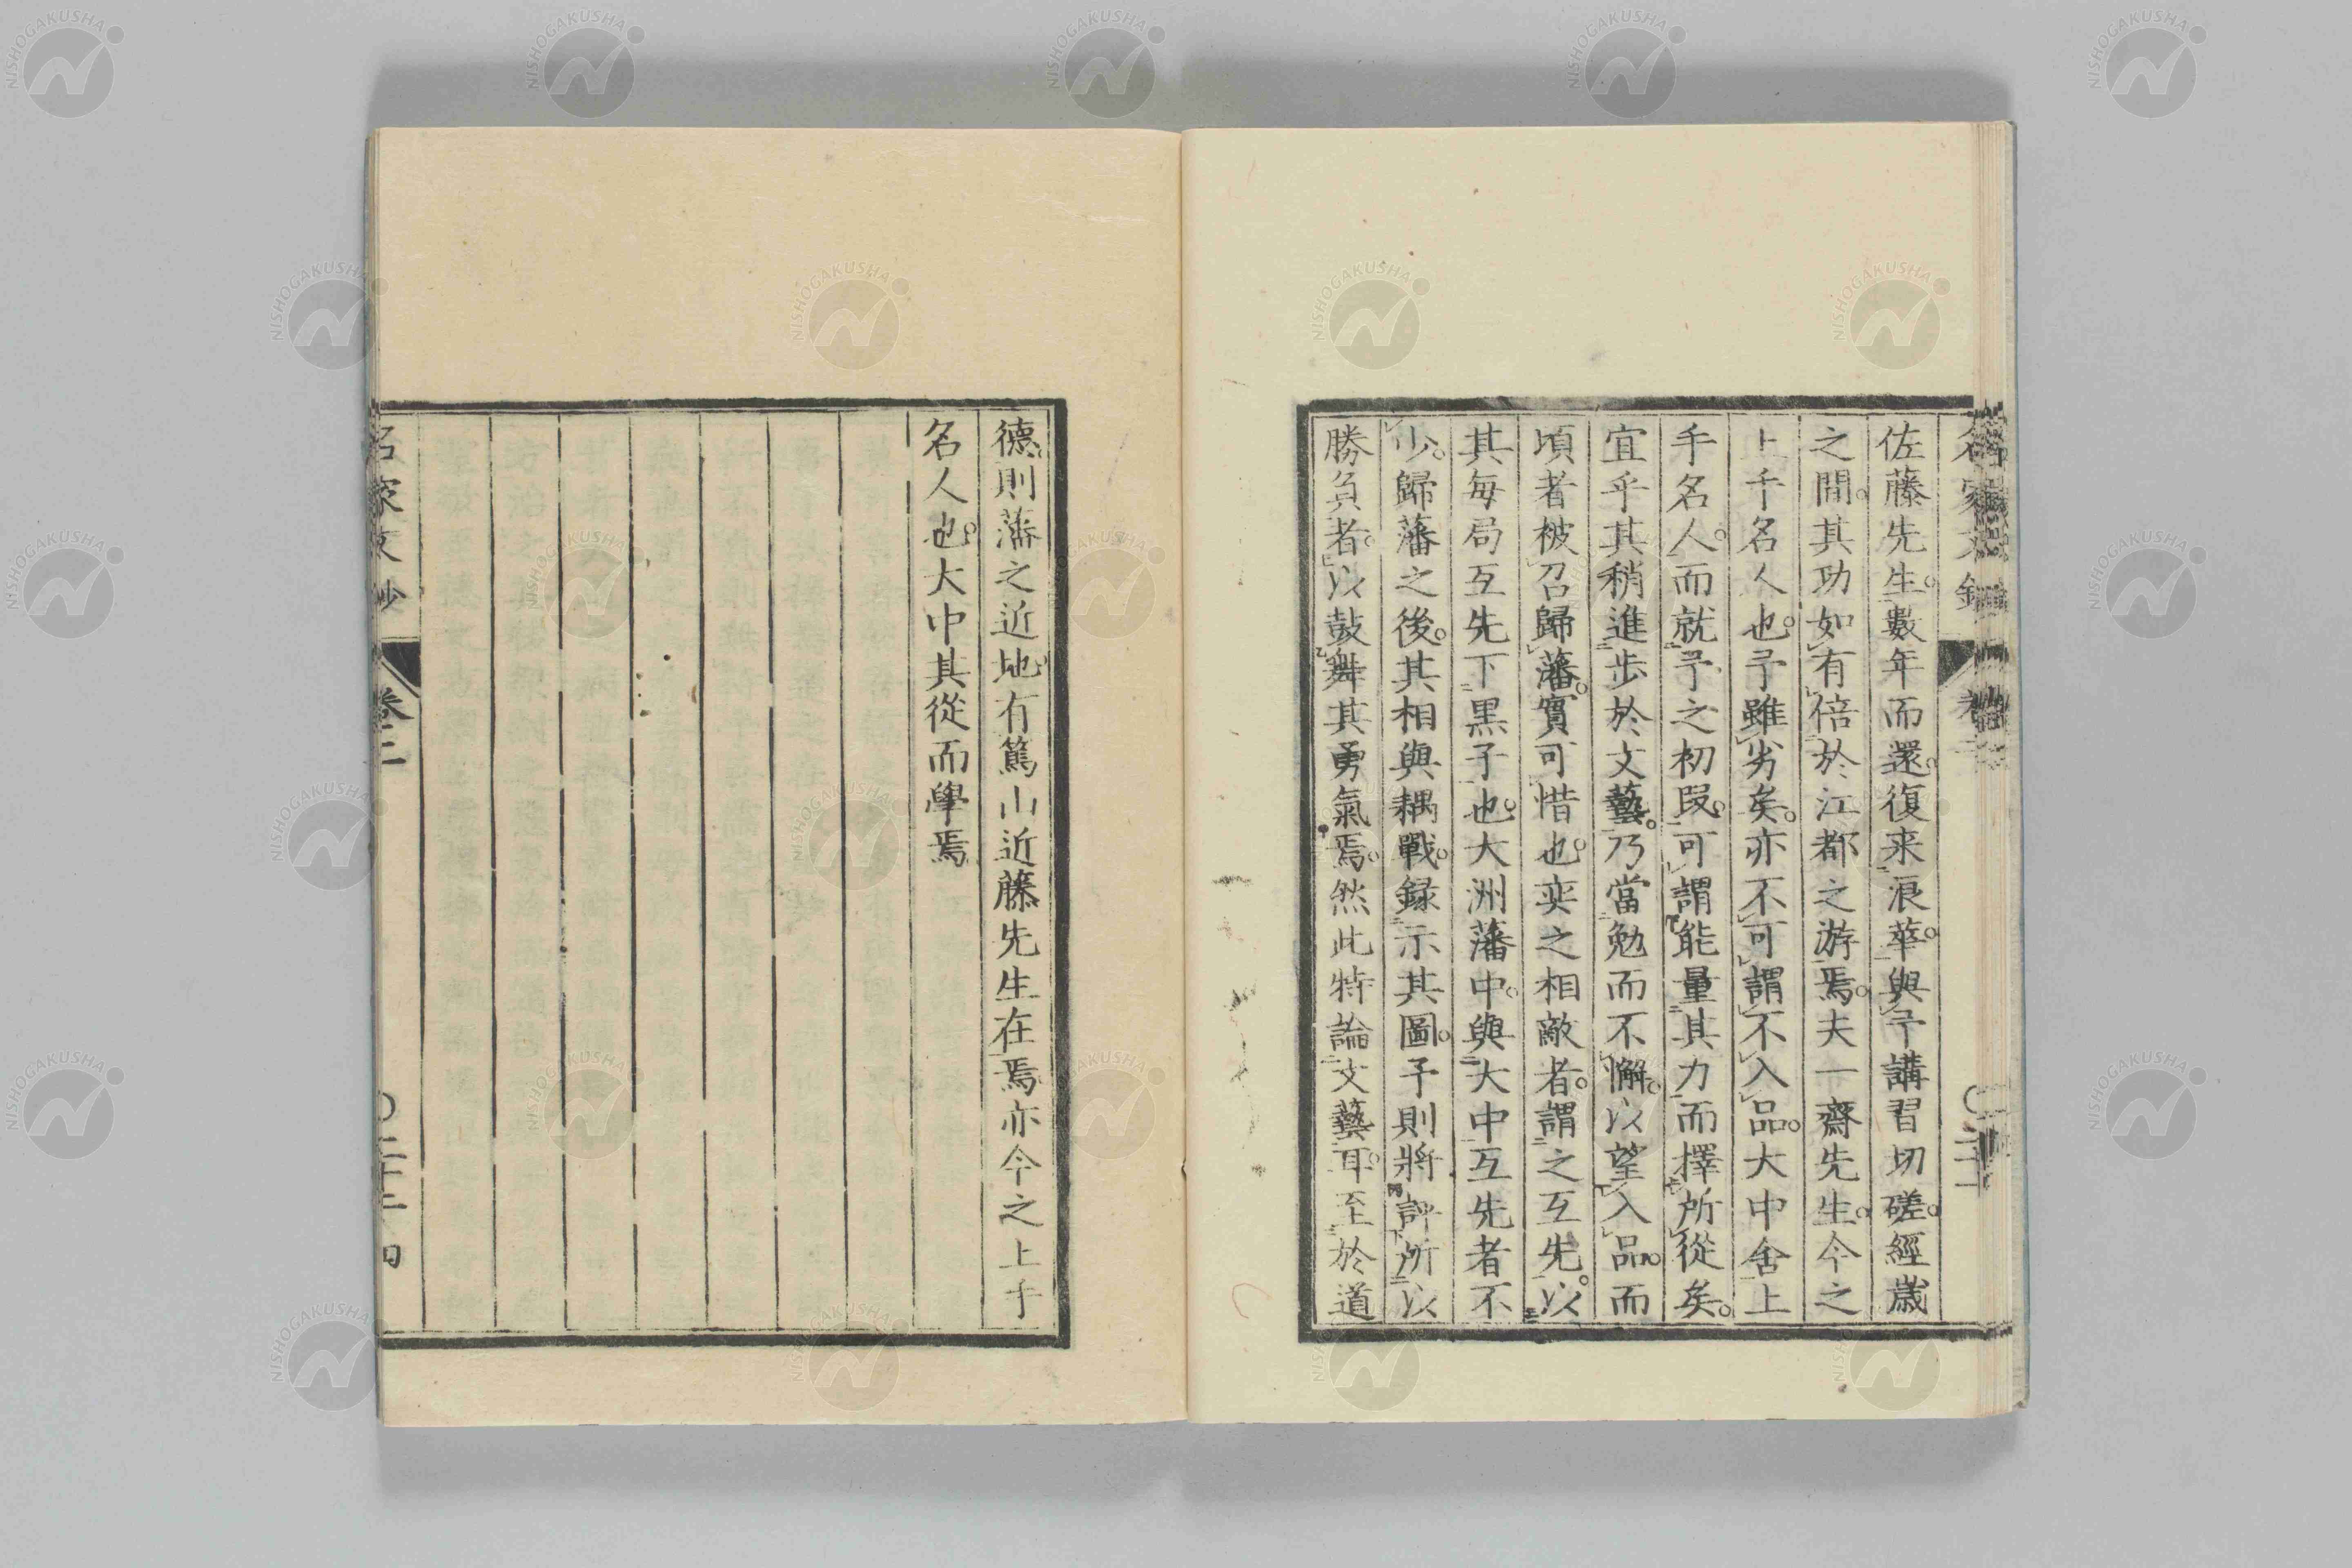 佐藤先生。數年而還。復来浪華。與予講習切磋。經歳
之間。其功如有倍於江都之游焉。夫一齋先生。今之
上手名人也。予雖劣矣。亦不可謂不入品。大中舍上
手名人。而就予之初段。可謂能量其力而擇所從矣。
宜乎其稍進步於文藝。乃當勉而不懈。以望入品。而
頃者被召歸藩。實可惜也。奕之相敵者。謂之互先。以
其每局互先下黒子也。大洲藩中。與大中互先者不
少。歸藩之後。其相與耦戰。録示其圖。予則將評所以
勝負者。以鼓舞其勇氣焉。然此特論文藝耳。至於道
德。則藩之近地。有篤山近藤先生在焉。亦今之上手
名人也。大中其從而學焉
名家文抄
卷二
〇二十四
NISHOGAKUSHA